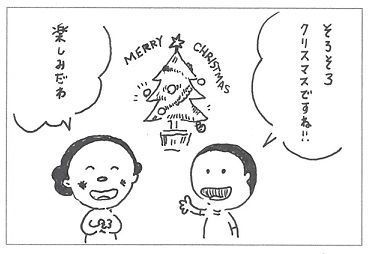 そろそろ
クリスマスですね!!
MERRY CHRISTMAS
楽しみだわ